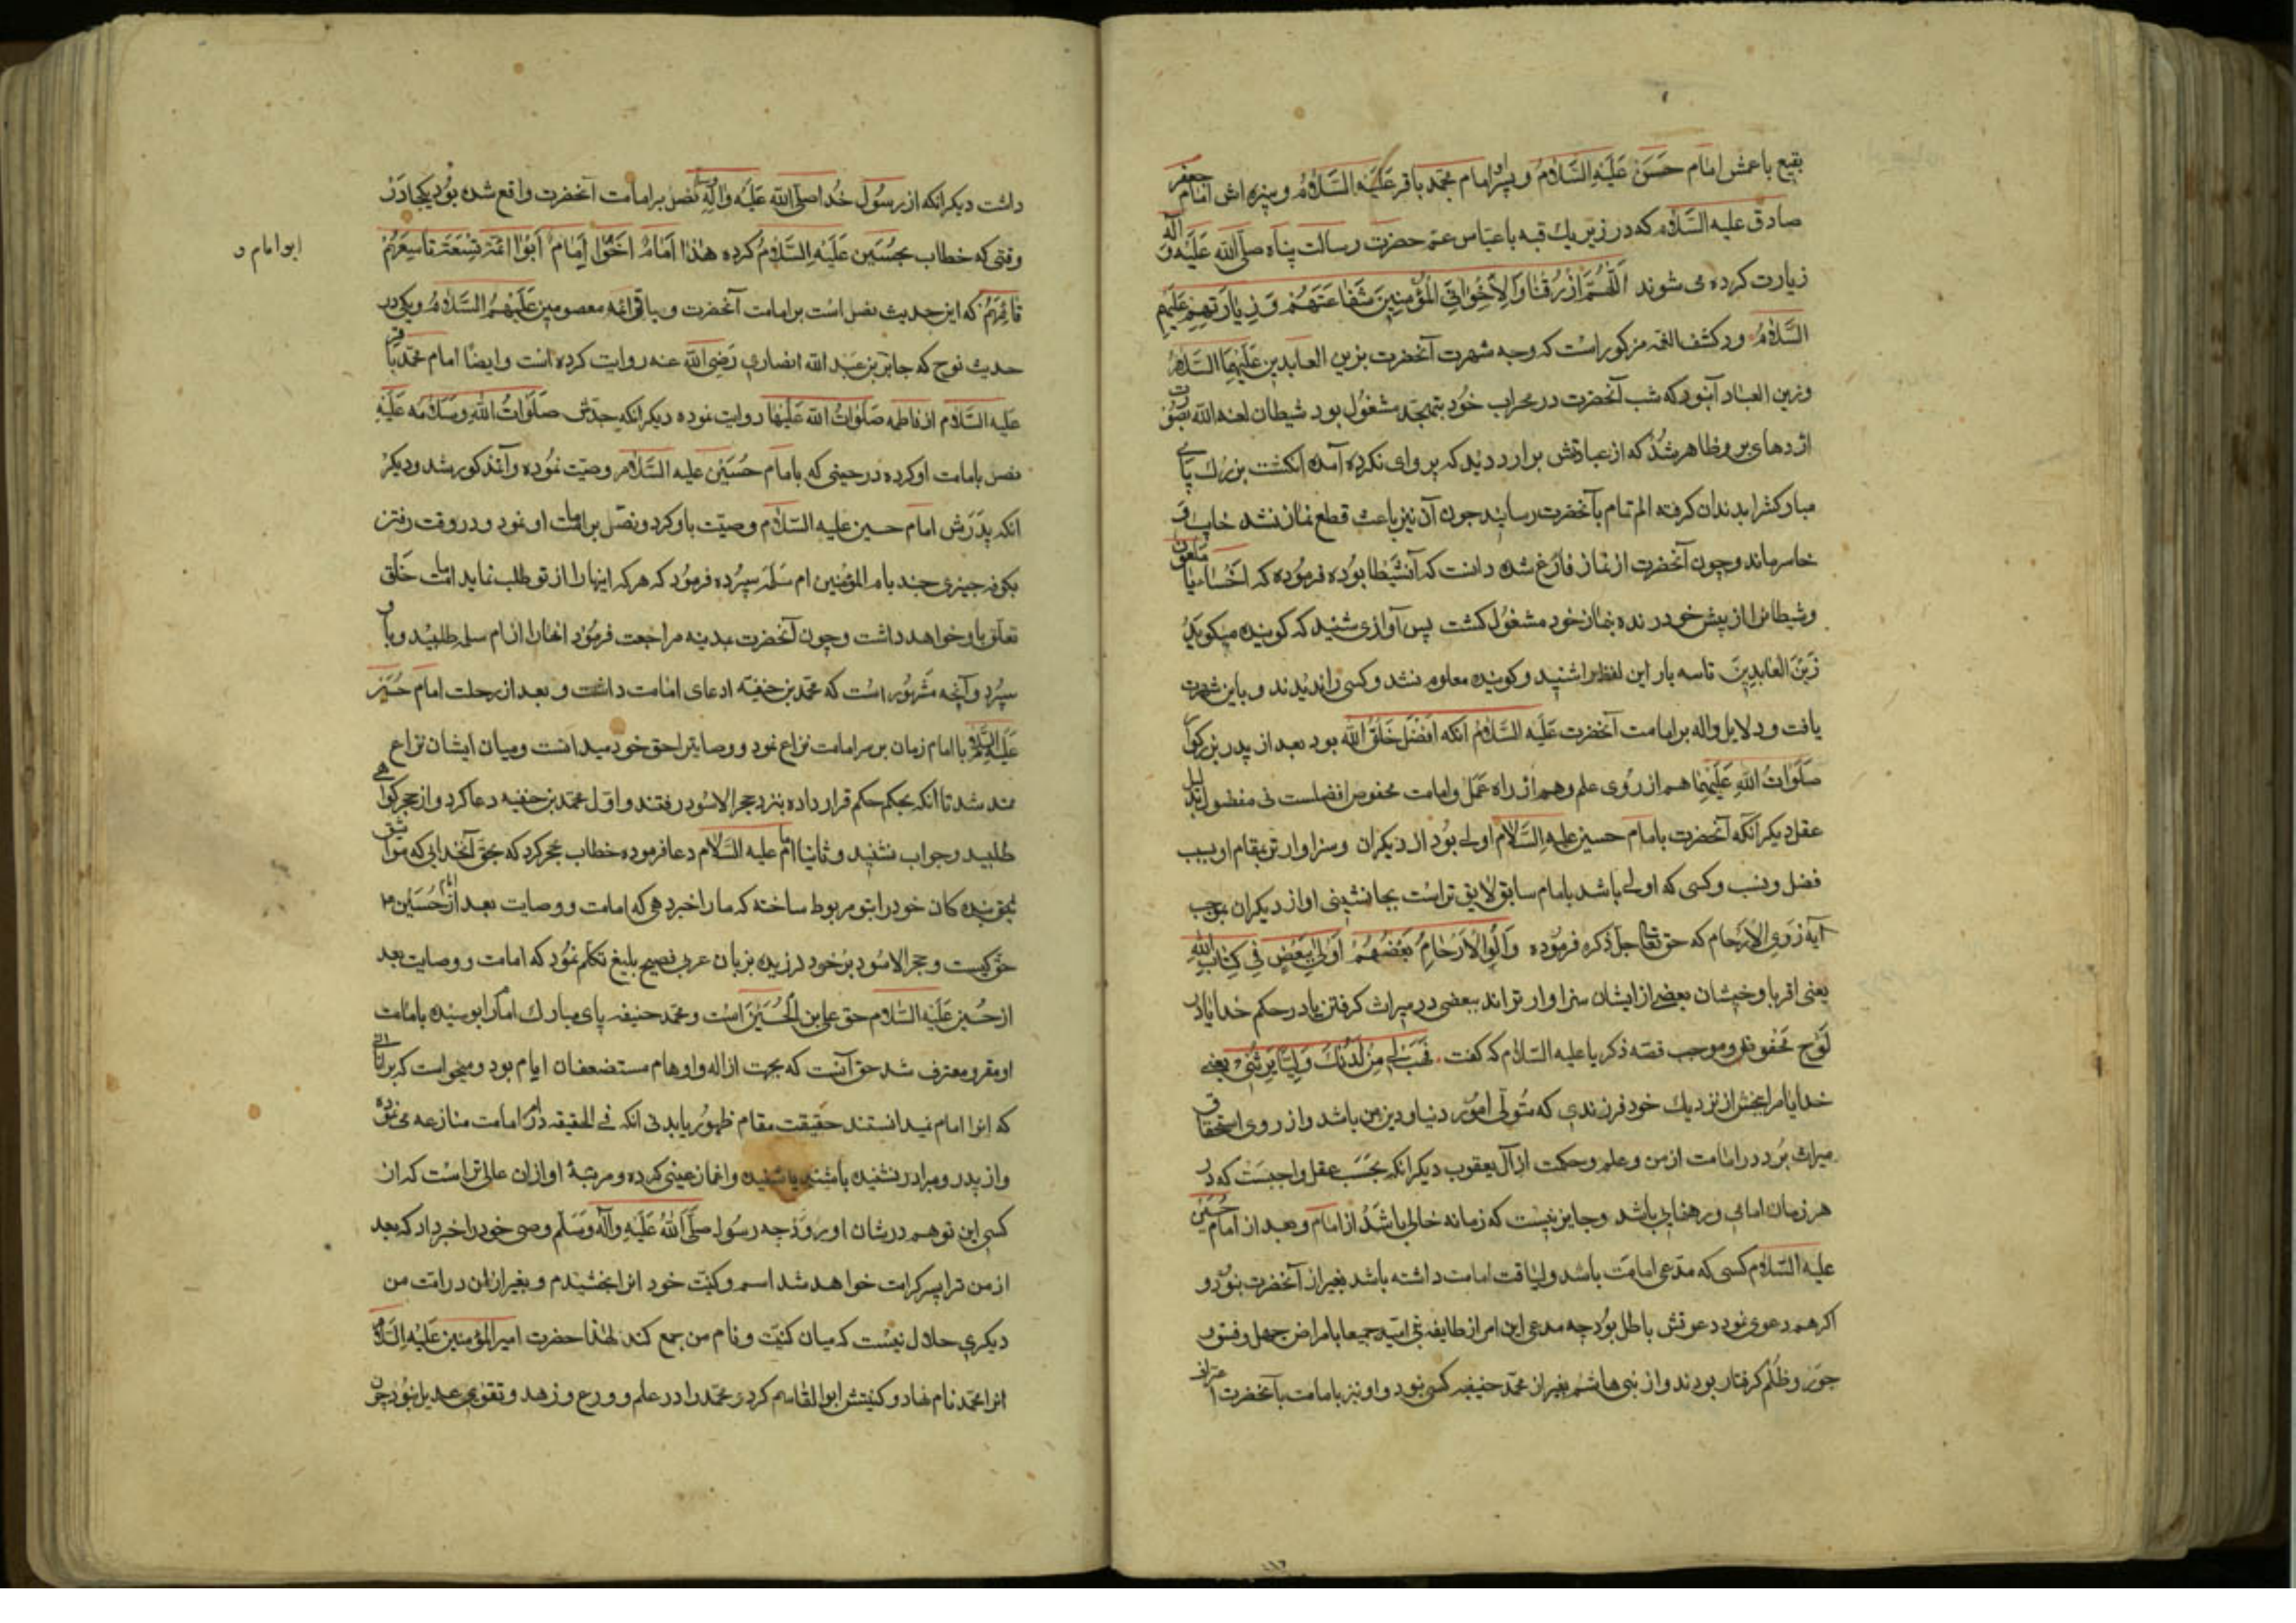 بقیع باعمش امام حَسَنْ عَلَیْهِ السَّلامُ وپسر او امام محمّد باقر عَلَیْهِ السَّلامُ ونبیره اش امام جعفر
صادق علیه السَّلام که در زیر یك قبه با عبّاس عمّ حضرت رسالت پناه صلّی الله عَلَیْهِ وآله
زیارت کرده می شوند اَللّهُمَّ ارْزُقْنا وَلِاِخْوانِیَ الْمُؤْمِنِینَ شَفاعَتَهُمْ وَزِیارَتَهُمْ عَلَیْهِمُ
السَّلامُ ودر کشف الغمه مزکور است که وجه شهرت آنحضرت بزین العابدین عَلَیْهِمَا السَّلامُ
وزین العباد آنبود که شب آنحضرت در محراب خُود بتهجّد مشغُول بود شیطان لعنه الله بصُورت
اژدهای برو ظاهر شُد که از عبادتش برآرد دید که پروای نکرده آمده انکشت بزرك پای
مبارکش را بدندان کرفته الم تمام بآنحضرت رسانید جون آن نیز باعث قطع نماز نشد خایب و
خاسر ماند وچون آنحضرت از نماز فارغ شده دانست که آن شیطان بوده فرمُوده که اخْسَأ یا ملعون
وشیطانرا از پیش خود رنده بنماز خود مشغُول کشت پس آوازی شنید که کوینده میکوید
زَیْنَ العَابِدِینَ تا سه بار این لفظ را شنید وکوینده معلوم نشد وکسی را ندیدند وباین شهرت
یافت ودلایل واله بر امامت آنحضرت عَلَیْهِ السَّلامُ آنکه اَفْضَل خَلقُ الله بود بعد از پدر بزرکوار
صَلَوٰاتُ اللهِ عَلَیْهِمٰا هم از رُوی علم وهم از راه عَمَل وامامت مخصوص افضلست نی مفضول بدلیل
عقل دیکر آنکه آنحضرت بامام حسین علیه السَّلام اولی بُود از دیکران وسزاوارتر بمقام او بسبب
فضل ونسب وکسی که اولی باشد بامام سابق لایق تر است بجانشینی او از دیکران بموجب
آیهٔ ذوی الاَرحام که حق تعالی جلّ ذکره فرمُوده وَاُلُوا الاَرْحٰامِ بَعْضُهُمْ اَوْلیٰ بِبَعْضٍ فِی کِتٰابِ الله
یعنی اقربا وخیشان بعضی از ایشان سزاوارتراند ببعضی در میراث کرفتن یا در حکم خدا یا در
لَوْح محفوظ وموجب قصّه ذکریا علیه السّلام که کفت فَهَبْ لِی مِنْ لَدُنْكَ وَلِیًّا یَرِثُنِی یعنی
خدایا مرا ببخش از نزدیك خود فرزندی که متُولّی امُور دنیا ودین من باشد واز روی استحقاق
میراث بَرد در امامت از من وعلم وحکمت از آل یعقوب دیکر انکه بحَسَب عقل واجبست که در
هر زمان امامی ورهنمایی باشد وجایز نیست که زمانه خالی باشد از امام وبعد از امام حُسَیْن
علیه السّلام کسی که مدّعی امامت باشد ولیاقت امامت داشته باشد بغیر از آنحضرت نبود و
اکر هم دعوی نمود دعوتش باطل بُود چه مدعی این امر از طایفه بنی امیّه جمیعا بامراض جهل وفسق و
جَوْر وظُلْم کرفتار بودند واز بنی هاشم بغیر از محمّد حنیفه کسی نبود واو نیز بامامت بآنحضرت اعتراف
داشت دیکر انکه از رسُول خُدا صلّی الله عَلَیْه وَآلِهِ نصّ بر امامت آنحضرت واقع شده بُود یکجا دَرْ
وقتی که خطاب بحُسَین عَلَیْهِ السَّلامُ کرده هٰذا اِمامٌ اَخُو اِمامٍ اَبُو اَئمّة تِسْعَة تاسِعُهُمْ
قائِمُهُمْ که این حدیث نصل است بر امامت آنحضرت وباقی ائمّه معصومین عَلَیْهِمُ السَّلامُ ویکی در
حدیث لوح که جابر بن عبد الله انصاری رَضِیَ الله عنه روایت کرده است وایضًا امام محمّد باقر
علیه السَّلام از فاطمه صَلَوٰاتُ الله عَلَیْهٰا روایت نموده دیکر انکه جدّش صَلَوٰاتُ اللهِ وَسَلامُه عَلَیْهِ
نصل بامامت او کرده در حینی که بامام حُسَیْن علیه السَّلام وصیّت نمُوده وآن مذکور شد ودیکر
انکه پدَرش امام حسین علیه السّلام وصیّت باو کرد ونصّ بر امامت او نمود ودر وقت رفتن
بکوفه چیزی چند بام المؤمنین ام سَلَمه سِپُرده فرمُود که هرکه اینها را از تو طلب نماید امامت خَلْق
تعلّق باو خواهد داشت وچون آنحضرت بمدینه مراجعت فرمُود انها را از ام سلمه طلبید وباو
سپرد وآنچه مشهُور است که محمّد بن حنیفّه ادعای امامت داشت و بعد از رحلت امام حُسَیْن
عَلَیْهِ السَّلام با امام زمان بر سر امامت نزاع نمود ووصایت را حق خود میدانست ومیان ایشان نزاع
شد تا انکه بحکم حکم قرار داده بنزد حجر الاسْود رفتند واوّل محمّد بن حنفیه دعا کرد واز حجر کواهی
طلبید وجواب نشنید وثانیا امام علیه السَّلام دعا فرموده خطاب بحجر کرد که بحقّ آنخدایی که مواثیق
بندکان خود را بتو مربوط ساخته که ما را خبر دهی که امامت ووصایت بعد از امام حُسَیْن
حقّ کیست وحجر الاسْود بر خود لرزیده بزبان عربی فصیح بلیغ تکلم نمُود که امامت ووصایت بعد
از حُسین عَلَیْهِ السَّلام حق علی بن الحُسَیْن است ومحمّد حنیفه پای مبارك امام را بوسیده بامامت
او مقر ومعترف شد حق آنست که بجهت ازاله واوهام مستضعفان ایام بود ومیخواست که بر آنانی
که انرا امام نمیدانستند حقیقت مقام ظهُور یابد نی انکه فی الحقیقه در امر امامت منازعه می نمود
واز پدر وبرادر نشنیده باشند یا شنیده واغماز عینی کرده ومرتبهٔ او ازان عالی تر است که از
کسی این توهم در شان او برود چه رسُول صلّی الله عَلَیْهِ وَآلِهِ وَسَلّم وصی خود را خبر داد که بعد
از من ترا پسر کرامت خواهد شد اسم وکنیّت خود انرا بخشیدم وبغیر ازان در امت من
دیکری حلال نیست که میان کنیّت ونام من جمع کند لهٰذا حضرت امیر المؤمنین عَلَیْهِ السَّلام
انرا محمّد نام نهاد وکنیتش ابو القاسم کرد ومحمّد را در علم وورع وزهد وتقوی عدیل نبُود چون
ابو امام و